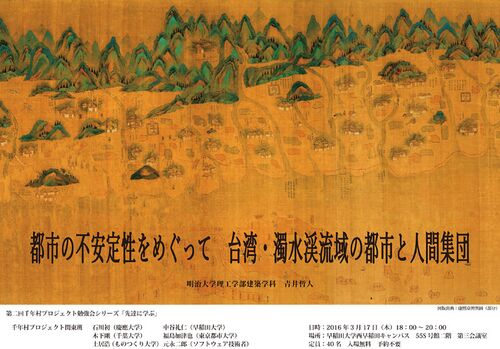 都市の不安定性をめぐって 台湾・濁水渓流域の都市と人間集団
明治大学理工学部建築学科 青井哲人
図版出典:康熙台湾輿図(部分)
第二回千年村プロジェクト勉強会シリーズ「先達に学ぶ」
千年村プロジェクト関東班 石川初(慶應大学) 中谷礼仁(早稲田大学)
木下剛(千葉大学) 福島加津也(東京都市大学)
土居浩(ものつくり大学) 元永二朗(ソフトウェア技術者)
日時:2016年3月17日(木)18:00〜20:00
場所:早稲田大学西早稲田キャンパス 55S号館二階 第三会議室
定員:40名 入場無料 予約不要